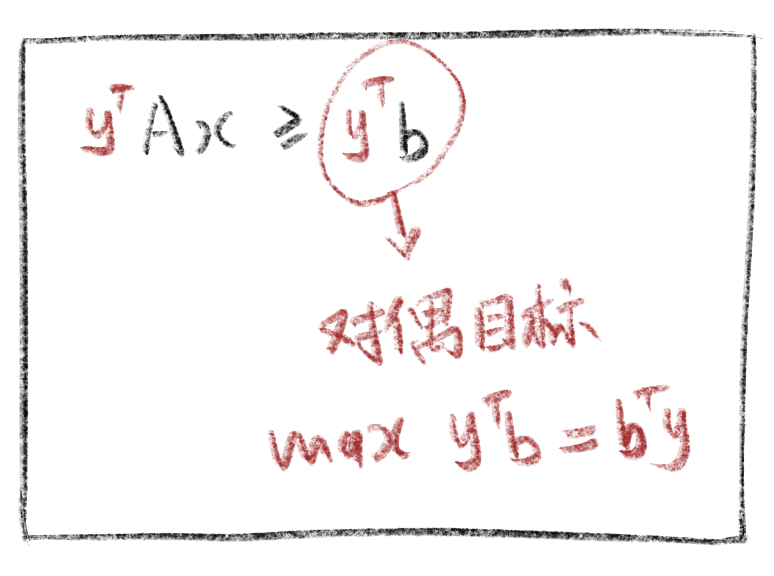 yᵀAx ≥ yᵀb
对偶目标
max yᵀb = bᵀy